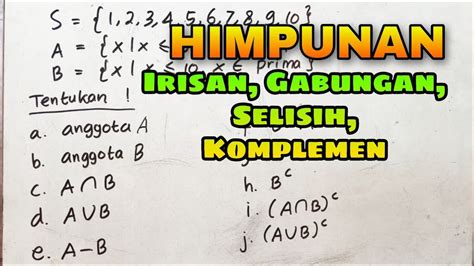 S = {1,2,3,4,5,6,7,8,9,10}
A = {x | x ∈
B = {x | x ≤ 10, x ∈ prima}
HIMPUNAN
Irisan, Gabungan,
Selisih,
Komplemen
Tentukan !
a. anggota A
b. anggota B
c. A∩B
d. A∪B
e. A−B
h. Bᶜ
i. (A∩B)ᶜ
j. (A∪B)ᶜ